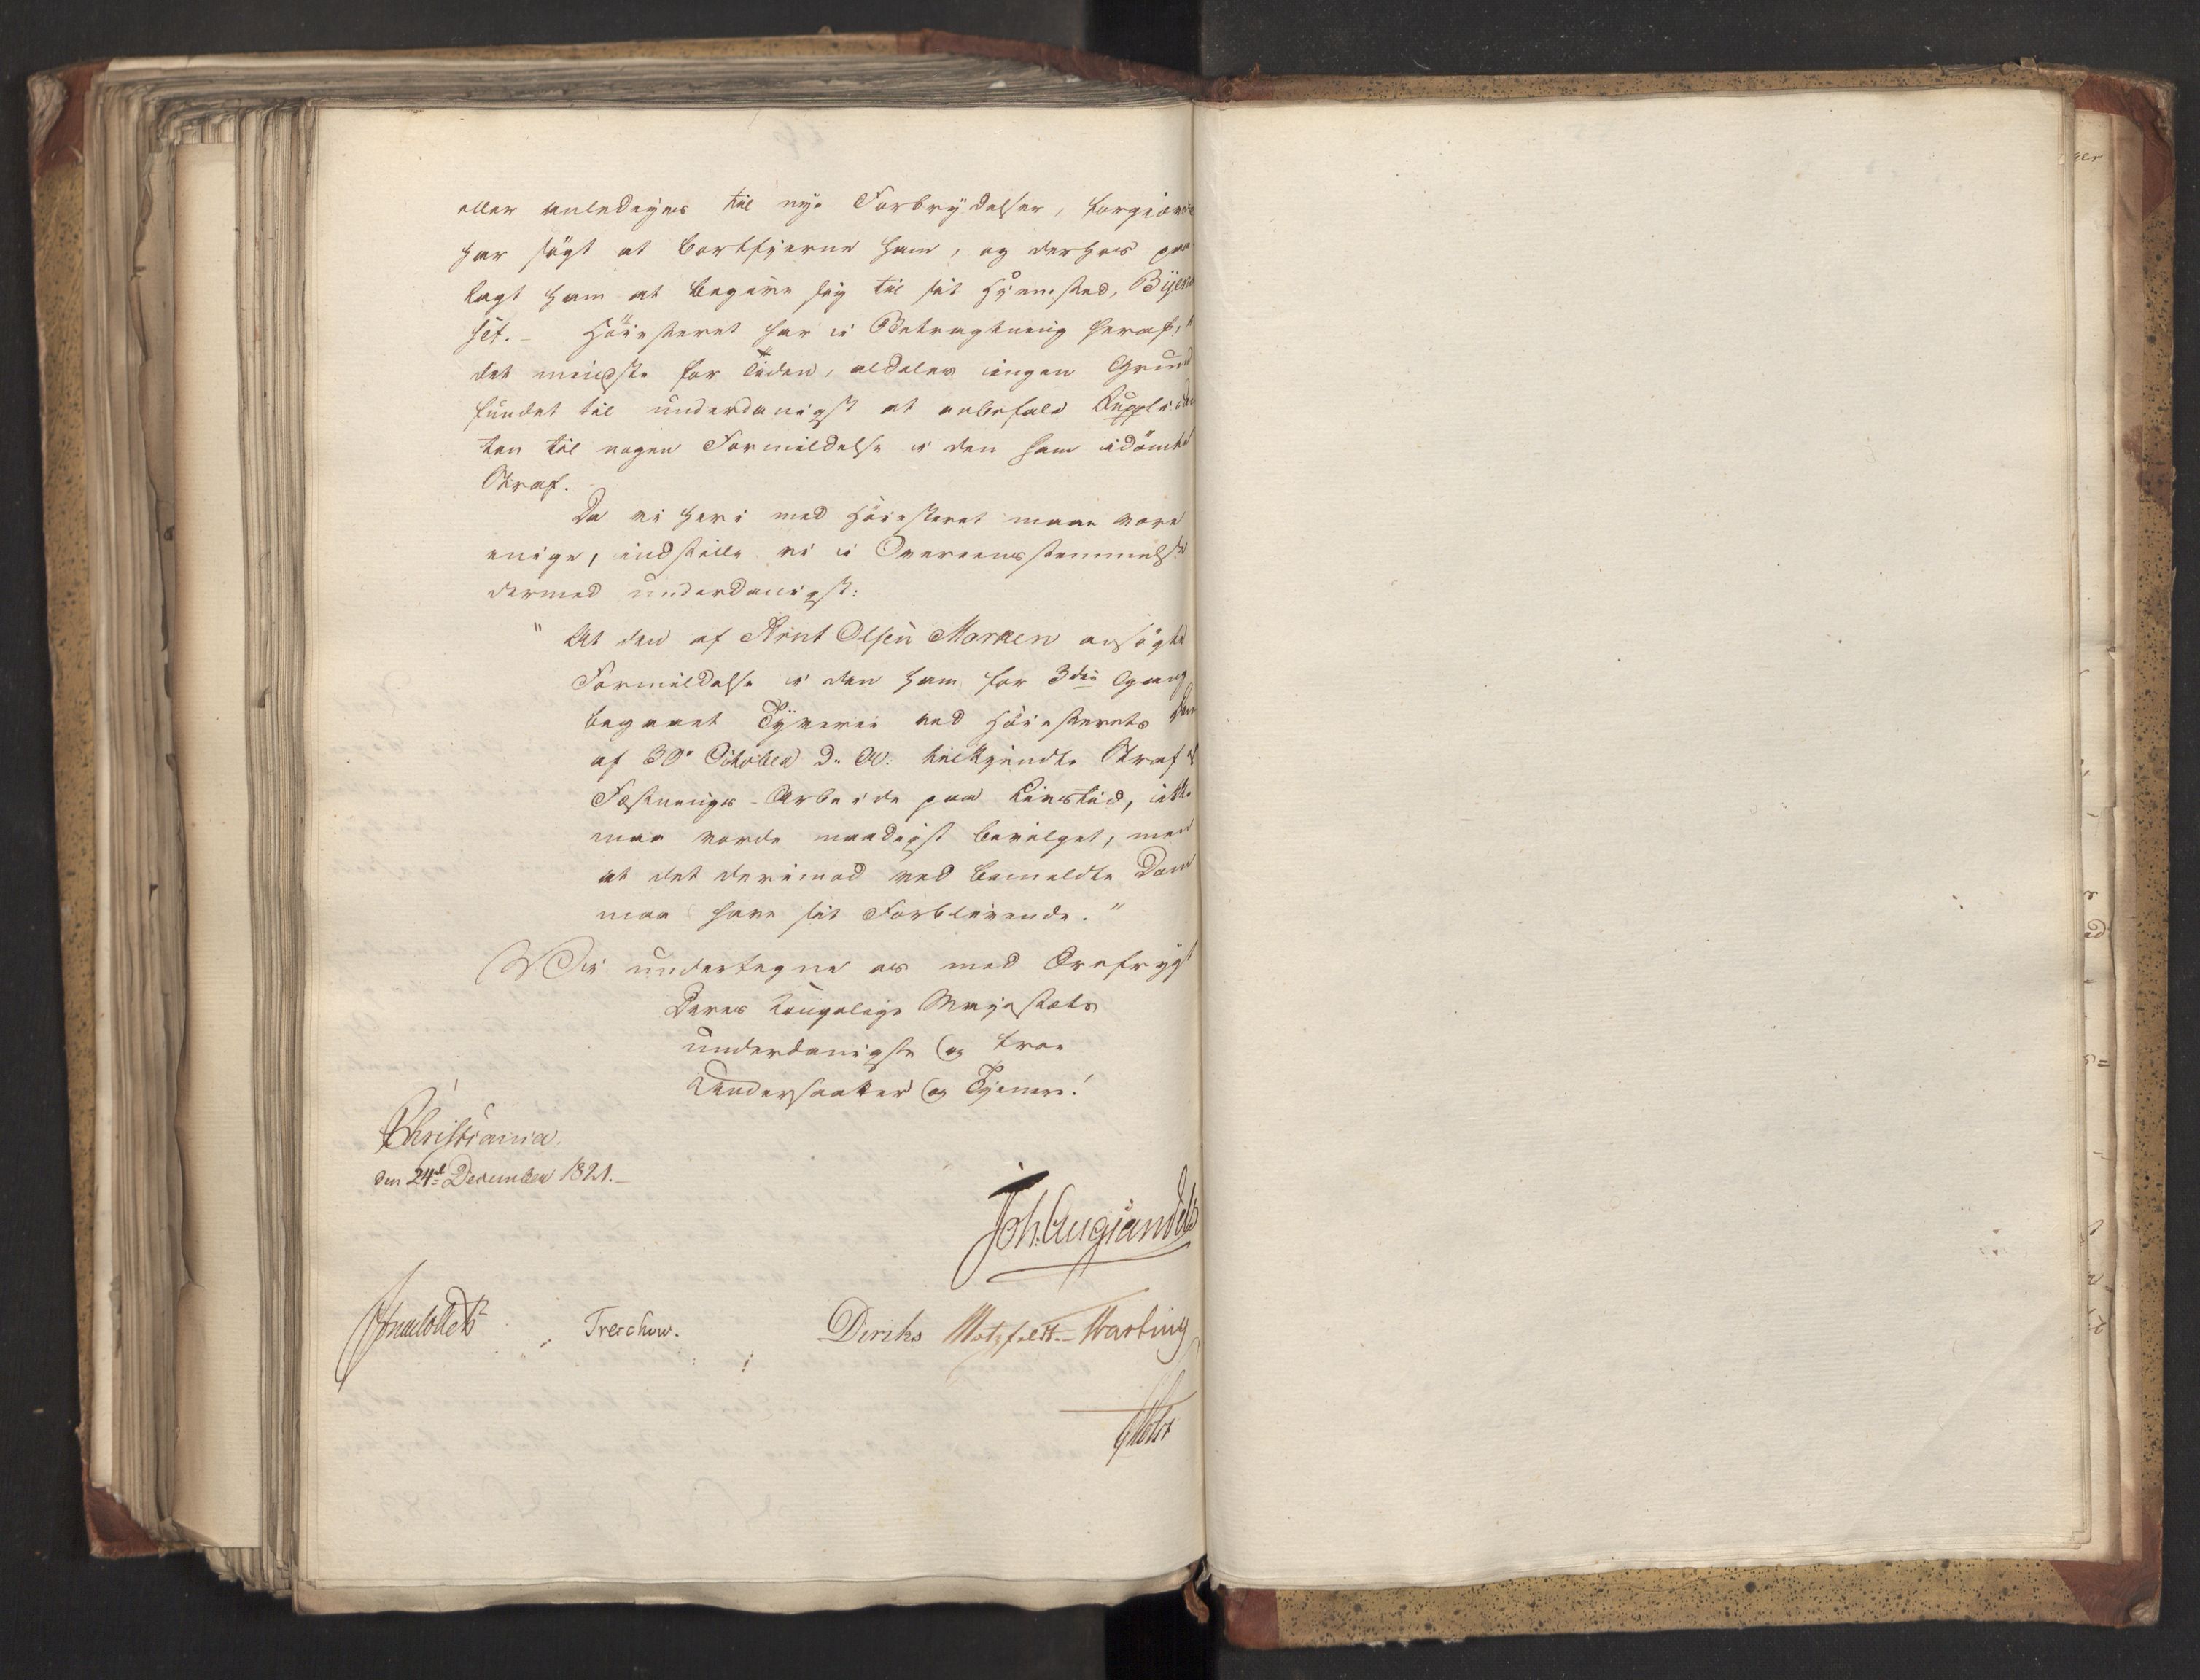 eller anlediges til nye Forbrydelser,
har søgt at bortfjerne ham, og derhos paa-
lagt ham at begive sig til sit Hjemsted,
set. – Høiesteret har i Betragtning heraf, i
det mindste for Tiden, aldeles ingen Grund
fundet til underdanigst at anbefale Supplican-
ten til nogen Formildelse i den ham idömte
Straf.
Da vi heri med Höiesteret maae være
enige, indstille vi i Overeensstemmelse
dermed underdanigst:
"At den af Arnt Olsen Marken ansøgte
Formildelse i den ham for 3die Gang
begaaet Tyverie ved Höiesterets Dom
af 30 October d. A. tilkjendte Straf af
Fæstnings-Arbeide paa Livstid, ikke
maa vorde naadigst bevilget, men
at det derimod ved bemeldte Dom
maa have sit Forblivende."
Vi undertegne os med Ærefrygt
Deres Kongelige Majestæts
underdanigste og troe
Undersaatter og Tjenere!
Christiania
den 24de December 1821.–
Treschow. Diriks Motzfeldt.–